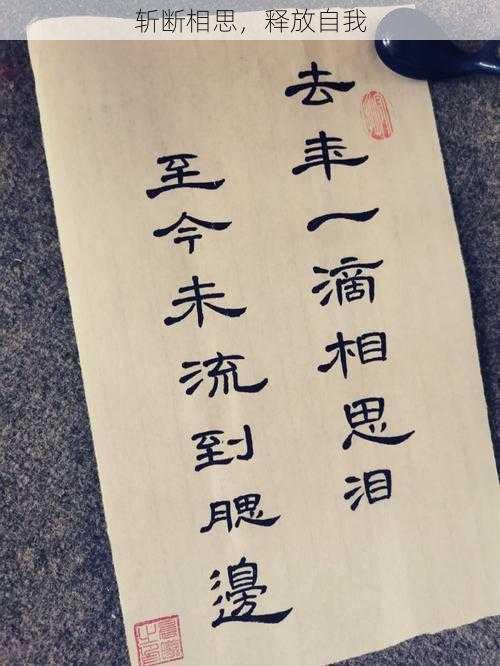 斩断相思，释放自我
去年一滴相思泪
至今未流到腮邊